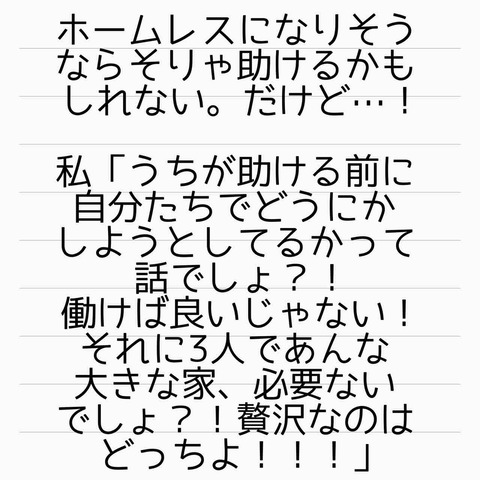 ホームレスになりそう
ならそりゃ助けるかも
しれない。だけど…！
私「うちが助ける前に
自分たちでどうにか
しようとしてるかって
話でしょ？！
働けば良いじゃない！
それに3人であんな
大きな家、必要ない
でしょ？！贅沢なのは
どっちよ！！！」